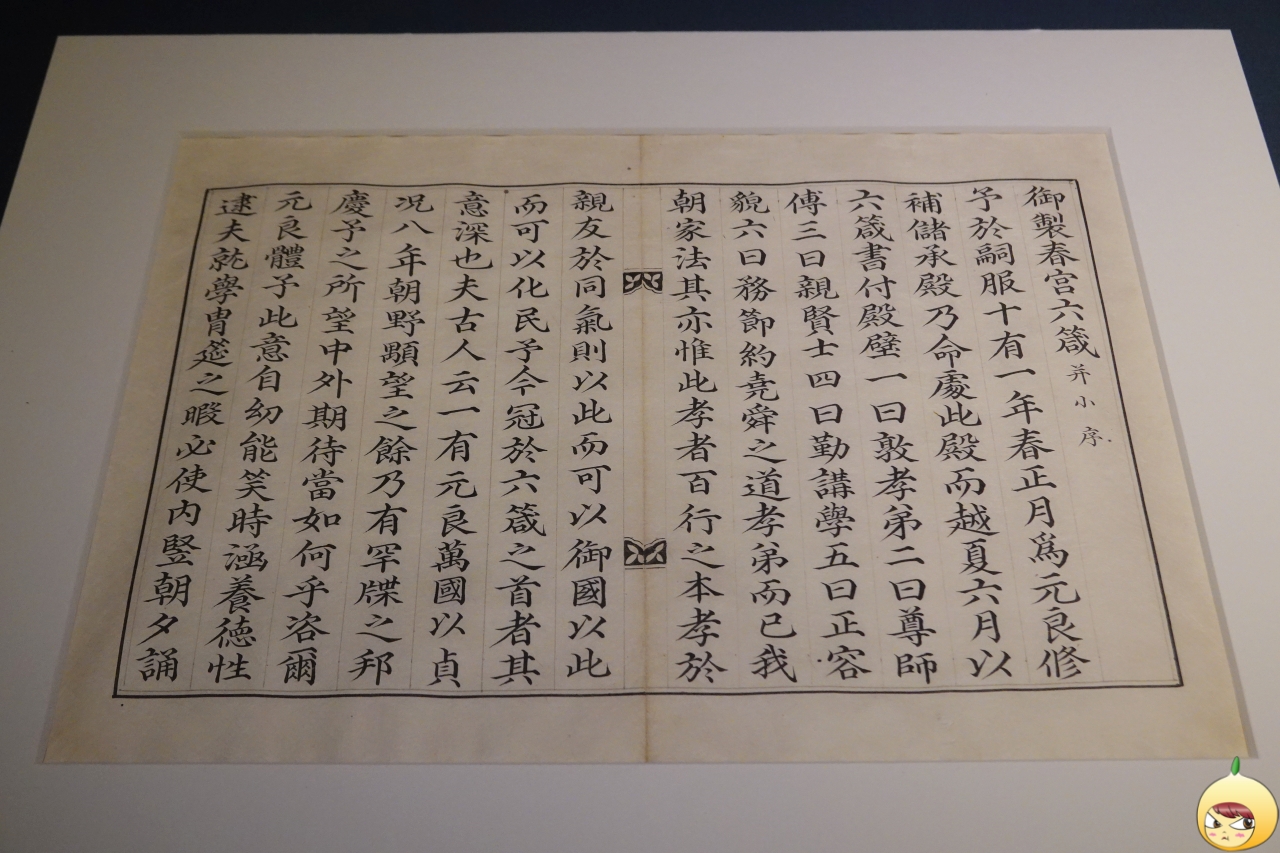 御製春宮六箴并小序
予於嗣服十有一年春正月爲元良修
補儲承殿乃命處此殿而越夏六月以
六箴書付殿壁一曰敦孝弟二曰尊師
傅三曰親賢士四曰勤講學五曰正容
貌六曰務節約堯舜之道孝弟而已我
朝家法其亦惟此孝者百行之本孝於
親友於同氣則以此而可以御國以此
而可以化民予今冠於六箴之首者其
意深也夫古人云一有元良萬國以貞
况八年朝野顒望之餘乃有罕牒之邦
慶予之所望中外期待當如何乎咨爾
元良體予此意自幼能笑時涵養德性
逮夫就學胄筵之暇必使内竪朝夕誦